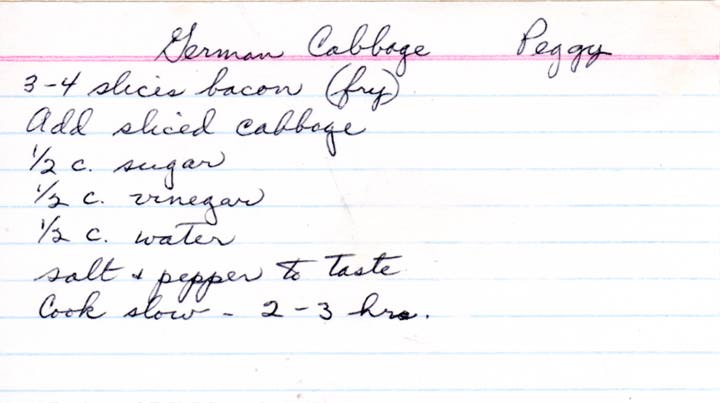 German Cabbage Peggy
3-4 slices bacon (fry)
Add sliced cabbage
1/2 c. sugar
1/2 c. vinegar
1/2 c. water
salt & pepper to taste
Cook slow - 2-3 hrs.